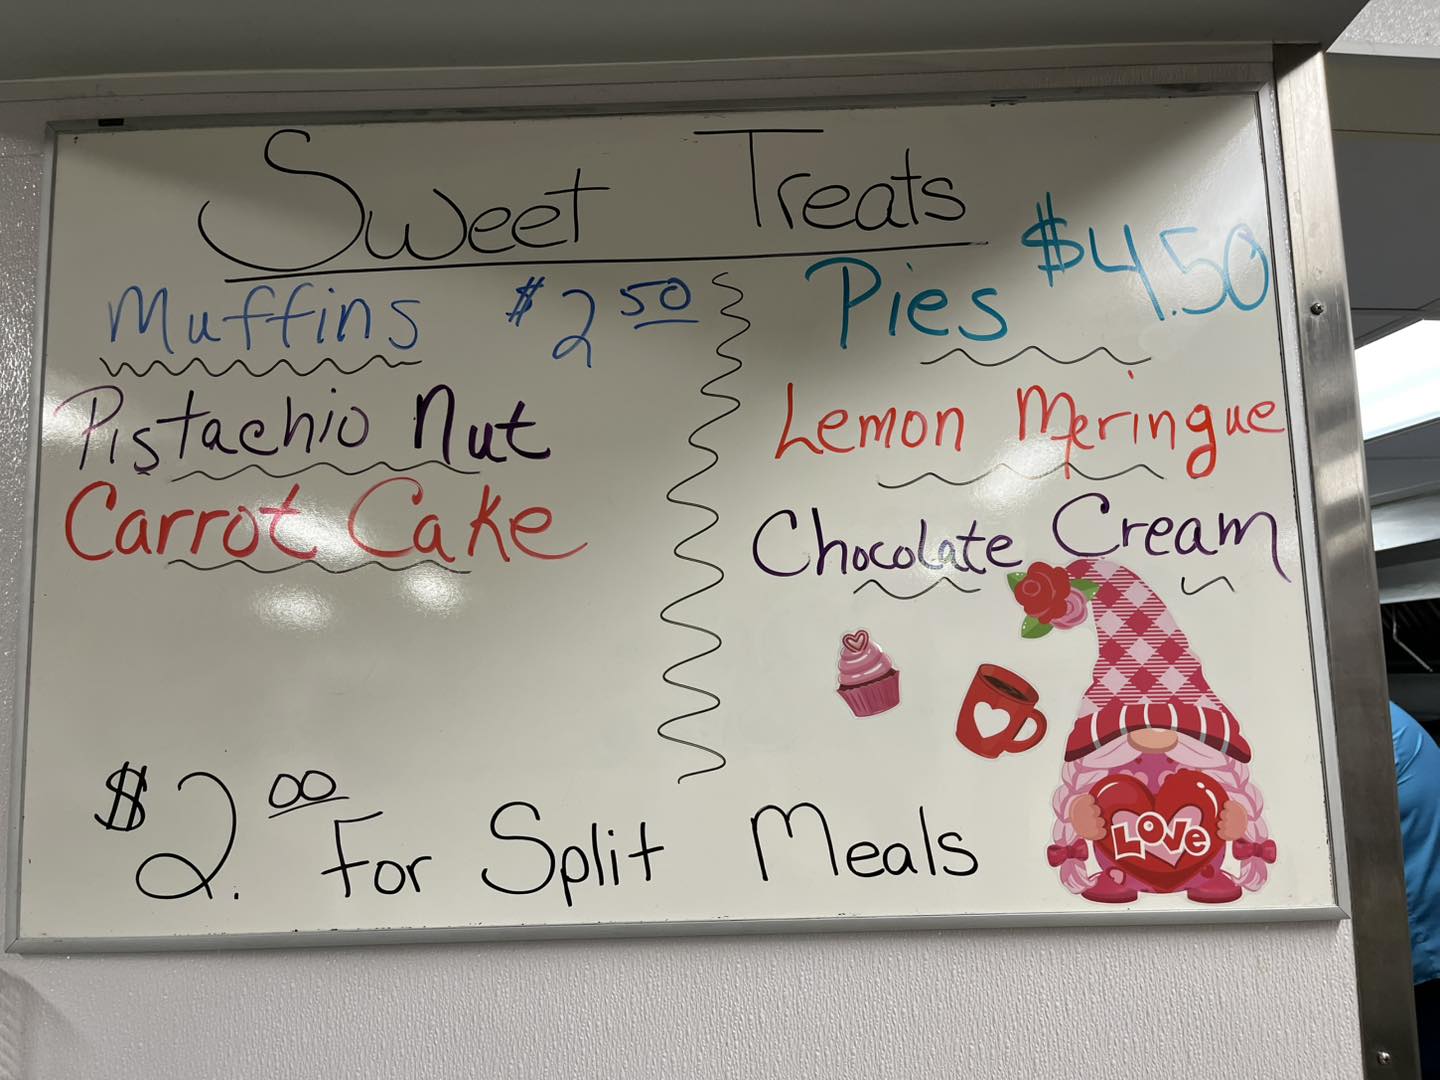 Sweet Treats
Muffins $2 50
Pistachio Nut
Carrot Cake
Pies $4.50
Lemon Meringue
Chocolate Cream
LOVe
$2. 00 For Split Meals